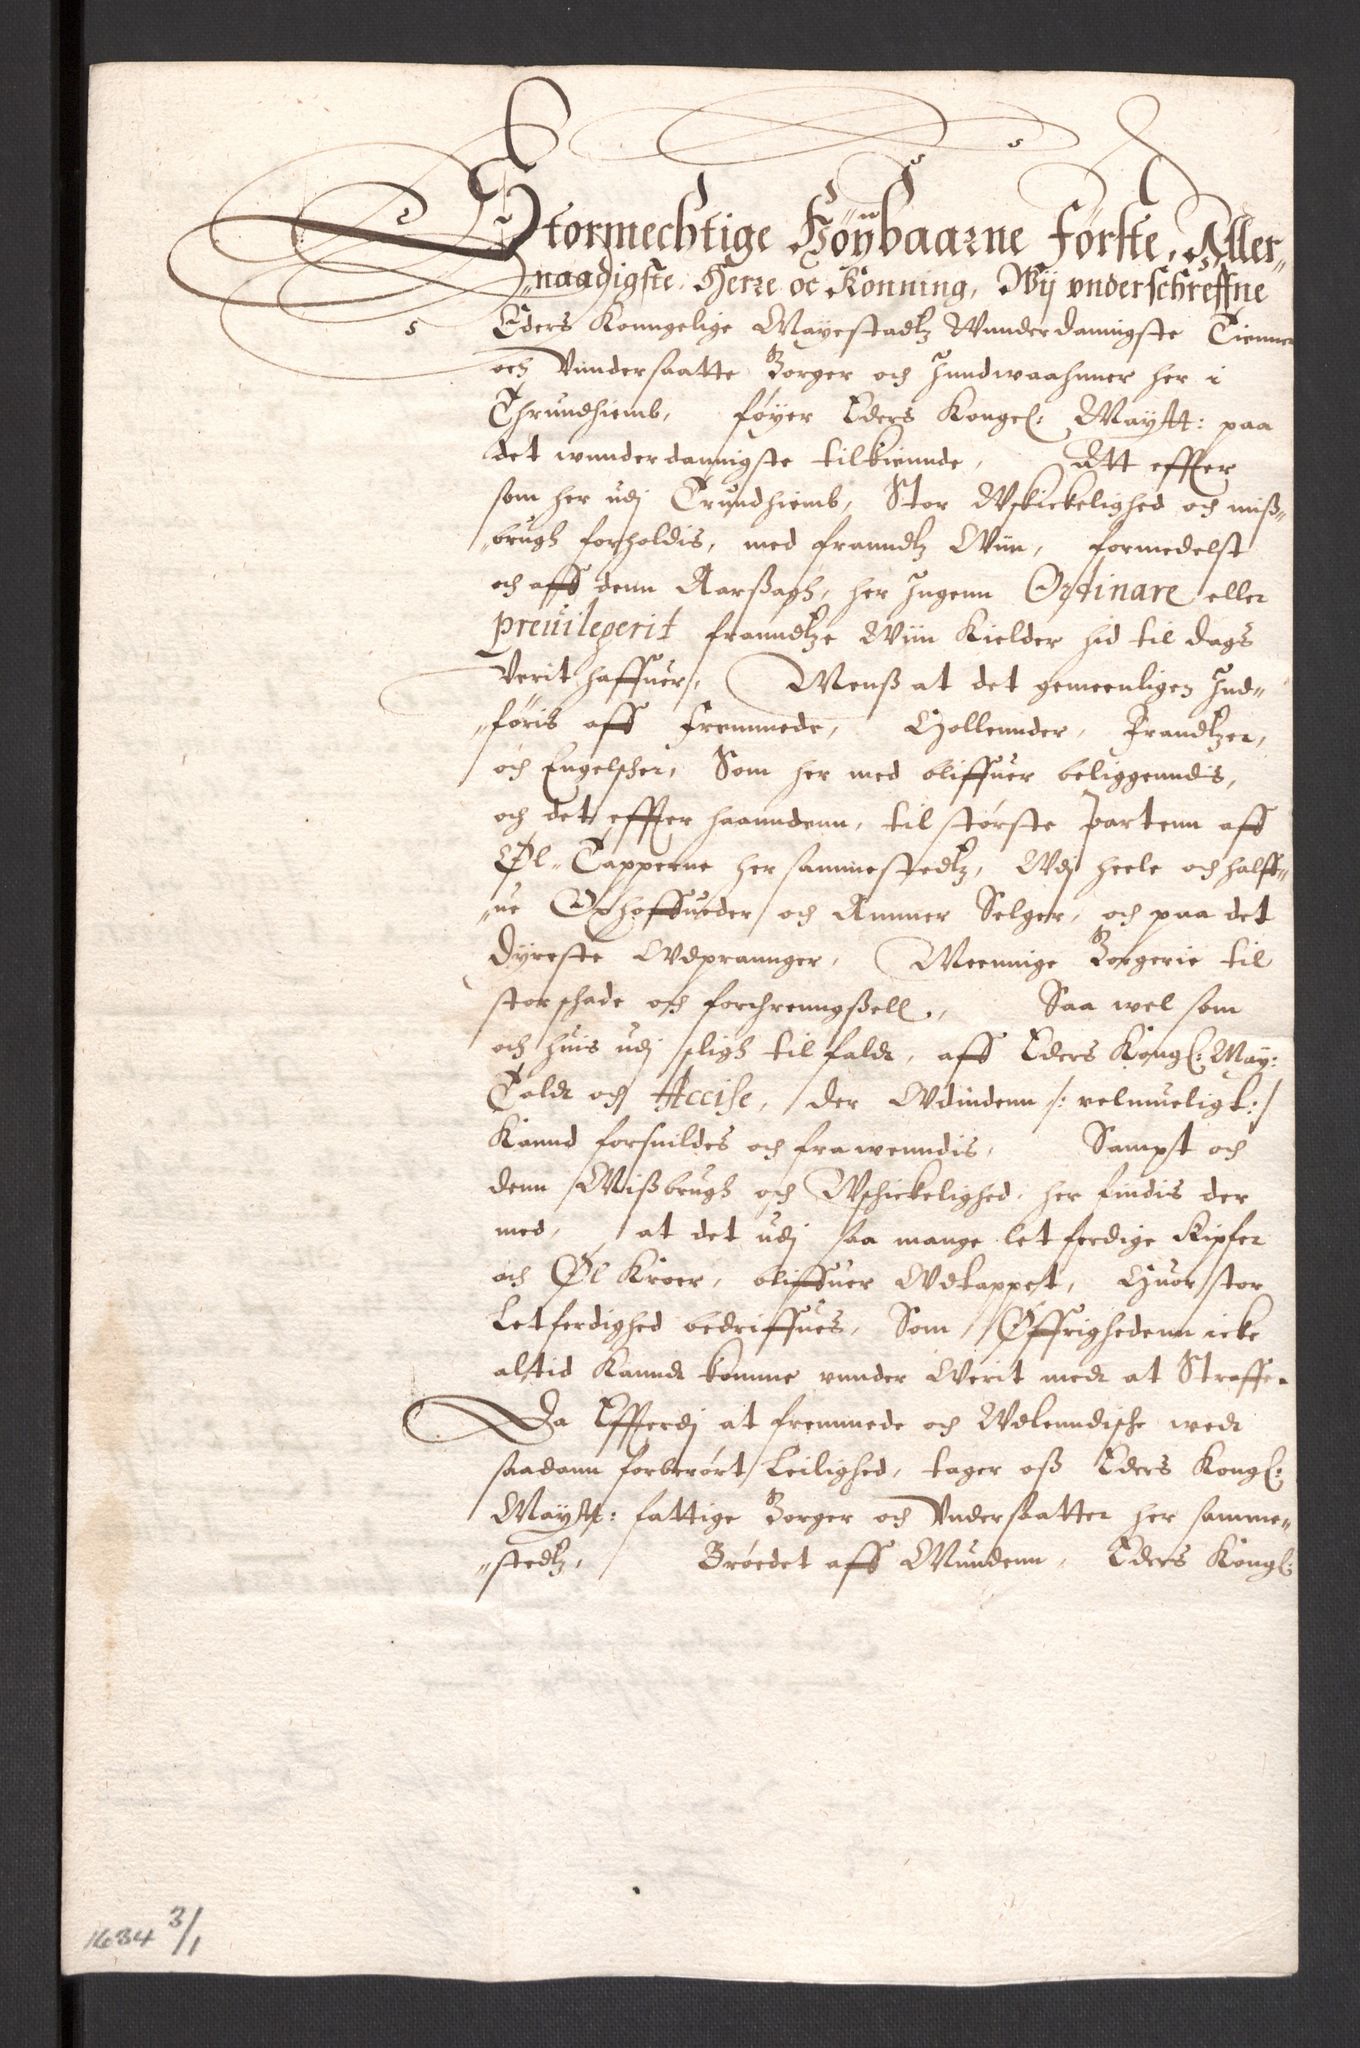 Stormechtige Höybaarne Förste, Aller-
naadigste Herre oc Konning, Wij vnderschreffne
Eders Konngelige Mayestadtz Wnnderdannigste Tienner
och Vnndersaatte Borger och Inndwaahnner her i
Thrundhiemb, føyer Eders Kongel: Maytt: paa
det wnnderdannigste tilkiennde, Att effter
som her udj Trundhiemb, Stor Wskickelighed och miß-
brugh forholdis, med franndtz Wiin, formedelst
och aff denn Aarßagh, her Ingenn Ordinare eller
previlegerit franndtze Wiin Kielder hid til dags
Verit haffuer, Menß at det gemeenligen Ind-
føris aff fremmede, Hollennder, Frandtzer,
och Engelscher, Som her med bliffuer beliggenndis,
och det effter haanndenn, til største partenn aff
Øl-Tapperne her sammestedtz, Wdj heele och halff-
ue Oxhoffueder och Ammer Selger, och paa det
dyreste Wdprannger, Meennige Borgerie til
stor schade och forthrenngßell, Saa wel som
och huis udj sligh tilfald, aff Eders Kongl: May:
Told och Accise, der Wdindenn /: velmueligt :/
Kannd forsuildes och frawenndis, Sampt och
denn Mißbrugh och Wschickelighed, her findis der
med, at det udj saa mange letferdige Kipper
och Øl Kroer, bliffuer Wdtappet, Huor stor
Letferdighed bedriffues, Som Øffrighedenn icke
altid Kannd komme vnnder Werit med at Straffe.
Da Effterdj at fremmede och Wdlenndische wed
saadann forberørt Leilighed, tager oß Eders Kongl:
Maytt: fattige Borger och Vndersaatter her samme-
stedtz, Brøedet aff Mundenn, Eders Kongl:
1634 3/1